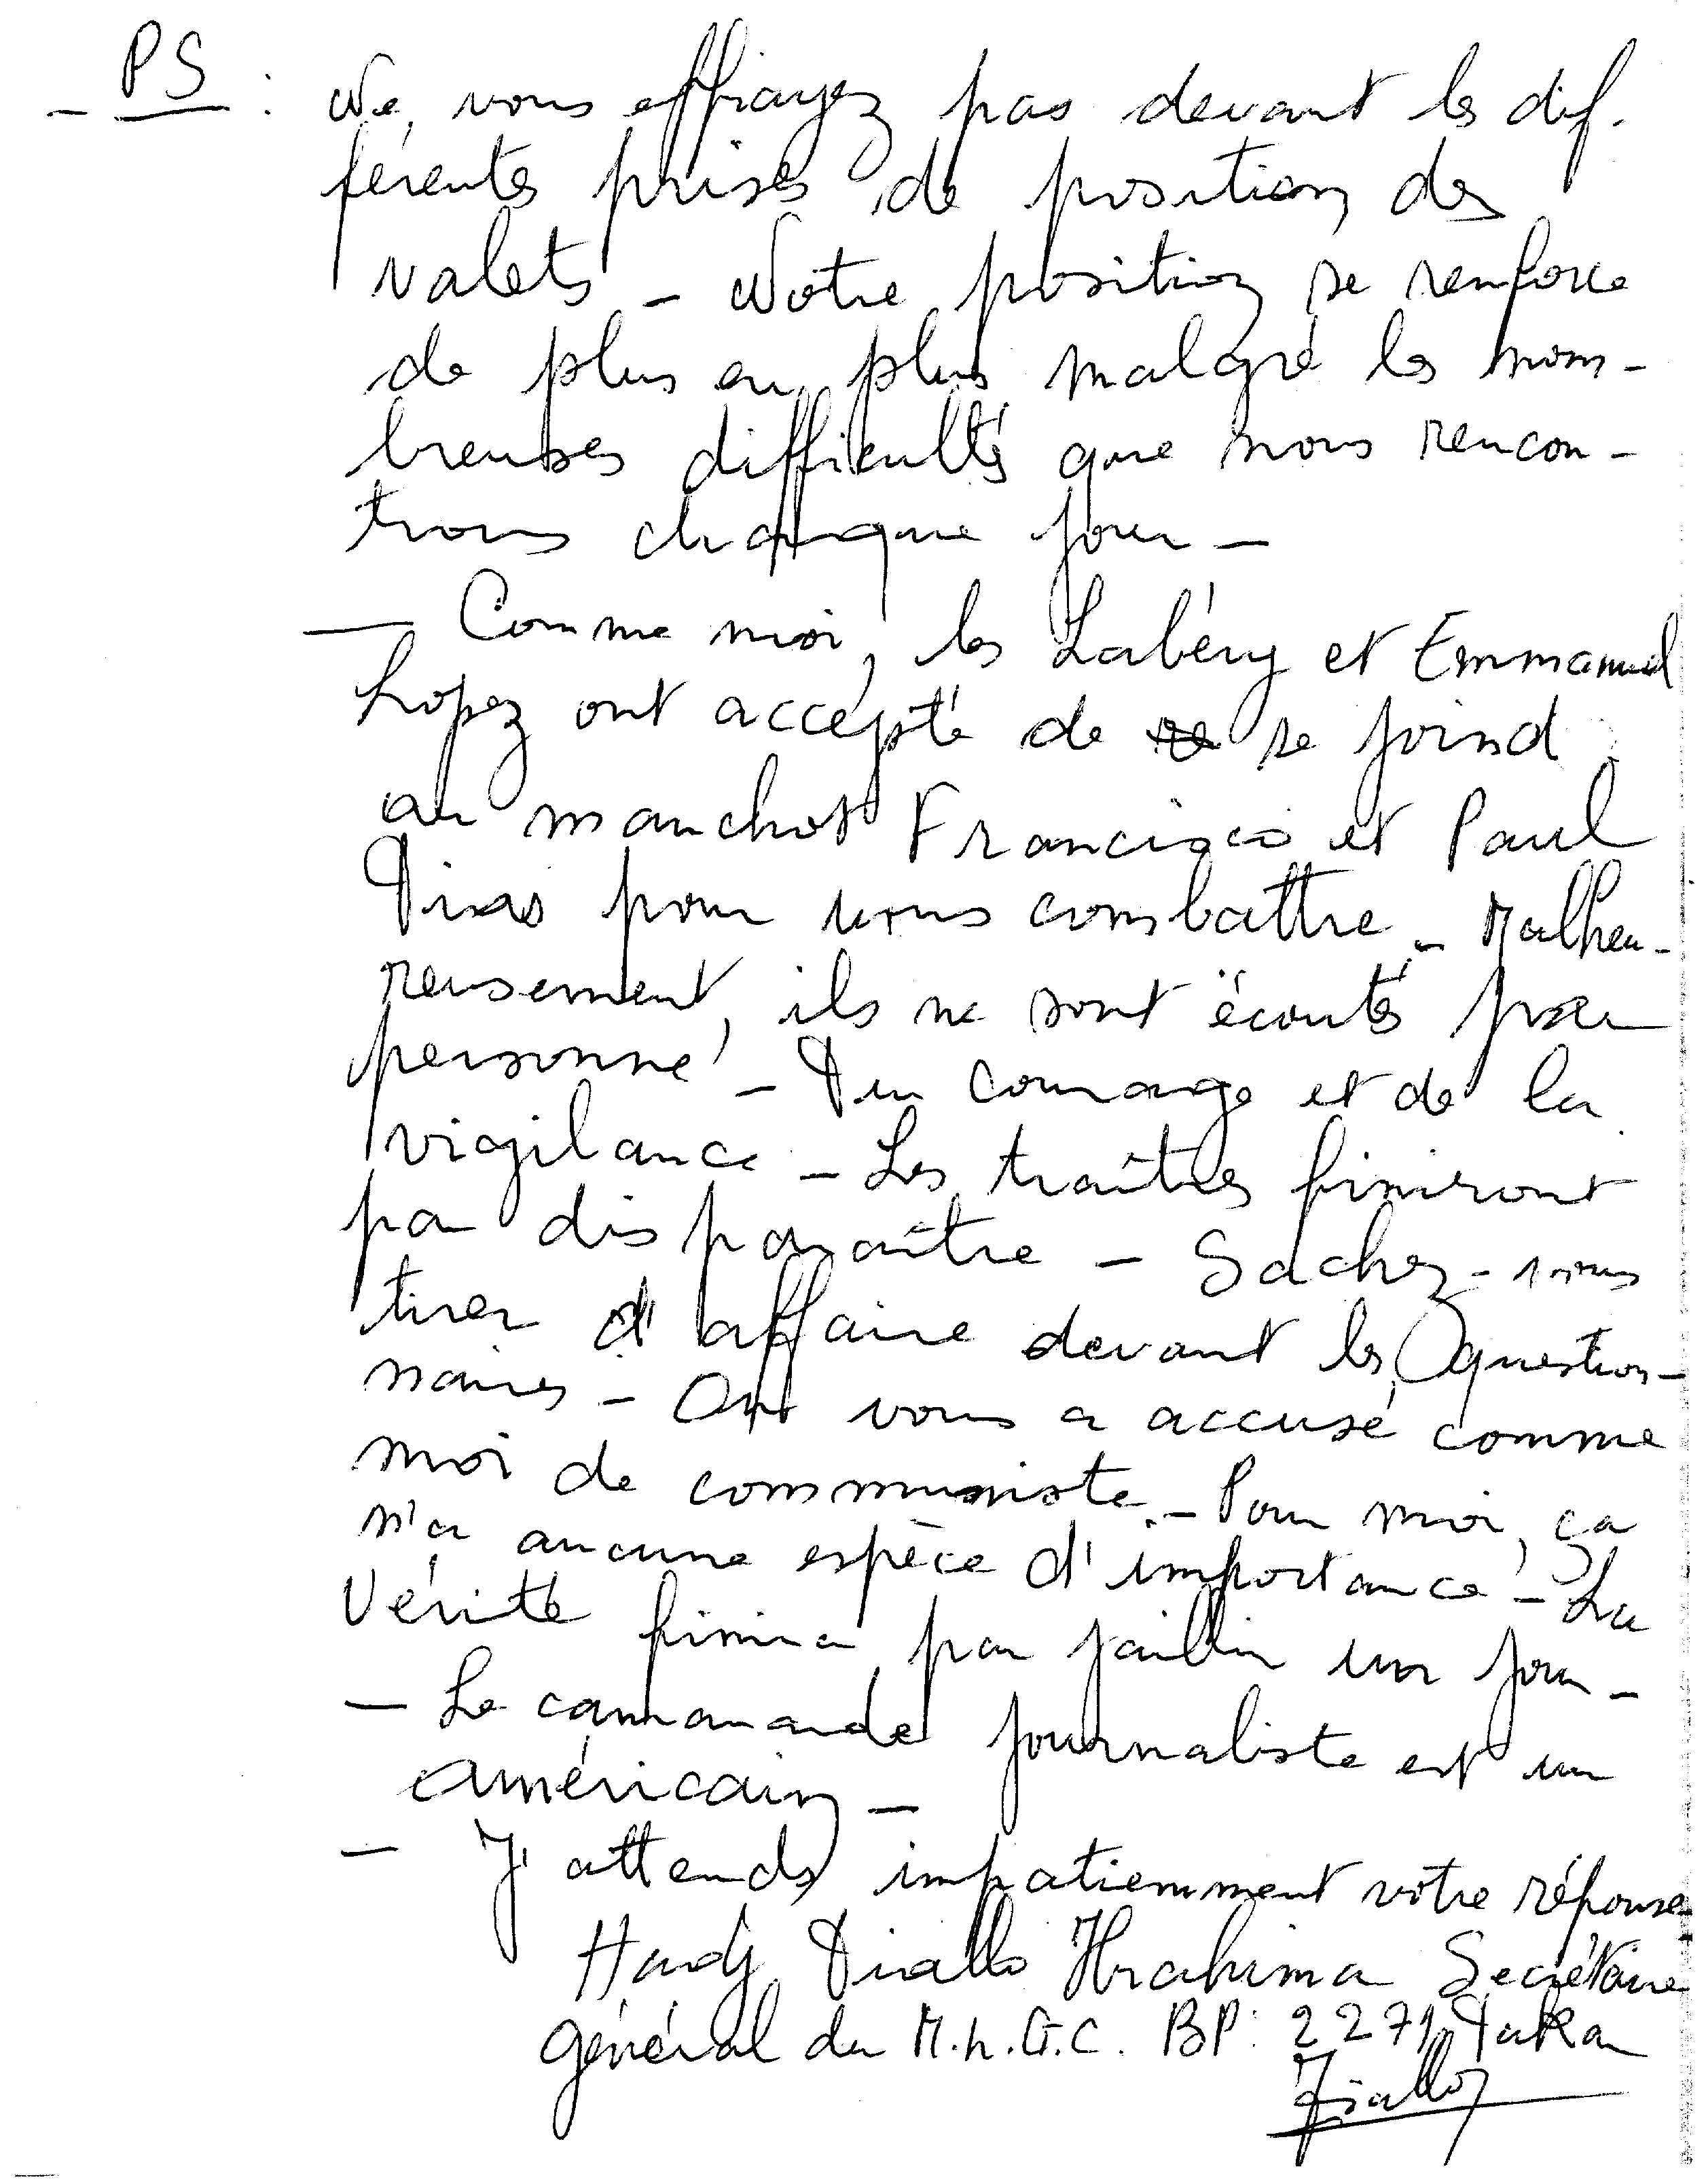 - PS : Ne vous effrayez pas devant les dif-
férentes prises de position des
valets - Notre position se renforce
de plus en plus malgré les nom-
breuses difficultés que nous rencon-
trons chaque jour -
- Comme moi, les Labéry et Emmanuel
Lopez ont accepté de se joind
au manchot Francisco et Paul
Dias pour nous combattre - Malheu-
reusement, ils ne sont écoutés par
personne - Du courage et de la
vigilance - Les traîtres finiront
par disparaître - Sachez-vous
tirer d'affaire devant les question-
naires - On vous a accusé comme
moi de communiste - Pour moi, ça
n'a aucune espèce d'importance - La
Vérité finira par jaillir un jour -
- Le camarade journaliste est un
américain -
- J'attends impatiemment votre réponse -
Hadj Diallo Ibrahima Secrétaire
général du M.L.G.C. BP: 2271 Dakar
Diallo